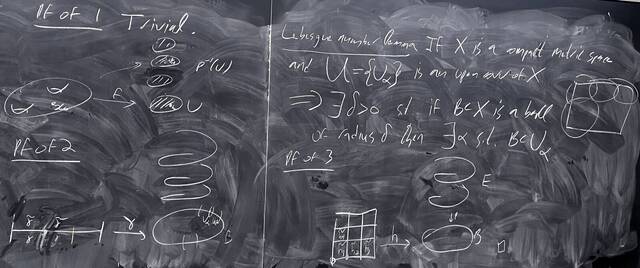 Pf of 1 Trivial.
p⁻¹(U)
f
U
Pf of 2
γ
B
Lebesgue number lemma If X is a compact metric space
and U = {U_α} is an open cover of X
⇒ ∃ δ>0 s.t. if B⊂X is a ball
of radius δ then ∃ α s.t. B⊂U_α
Pf of 3
E
h
B